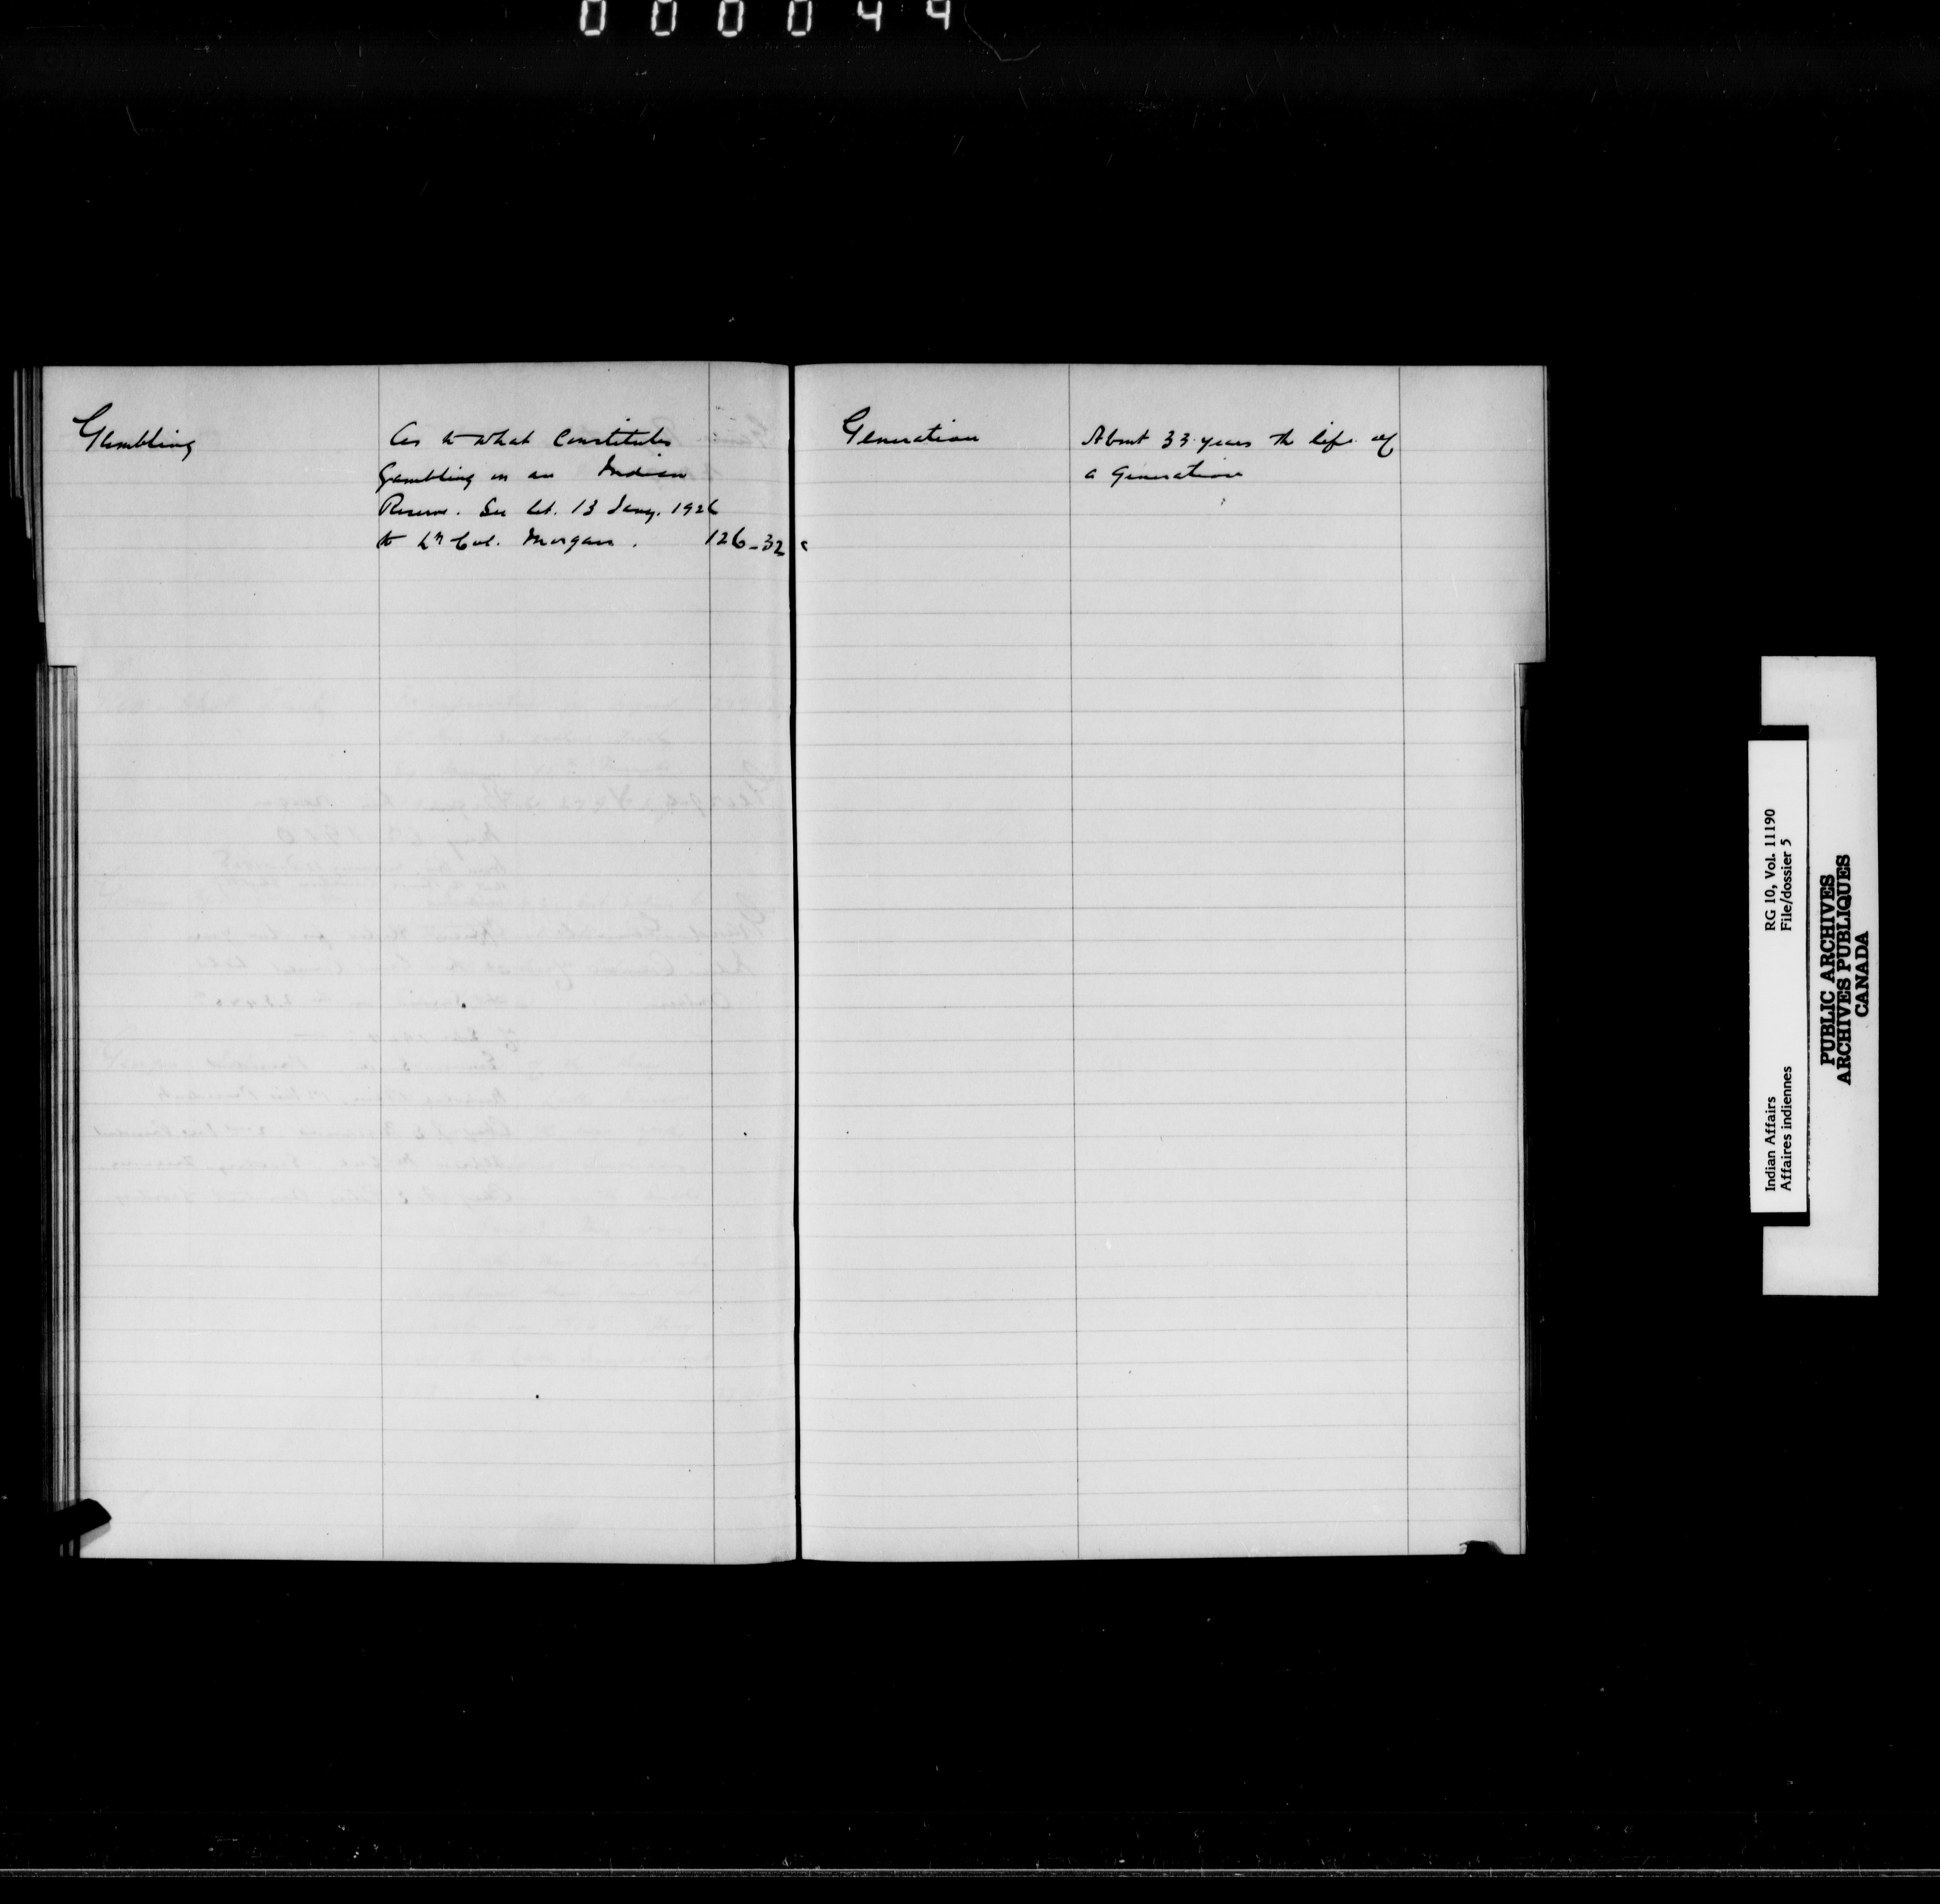 000044
Gambling
As to what Constitutes
Gambling on an Indian
Reserve. See let. 13 Jany. 1926
to Lt Col. Morgan. 126-32
Generation
About 33 years the life of
a Generation
Indian Affairs RG 10, Vol. 11190
Affaires indiennes File/dossier 5
PUBLIC ARCHIVES
ARCHIVES PUBLIQUES
CANADA